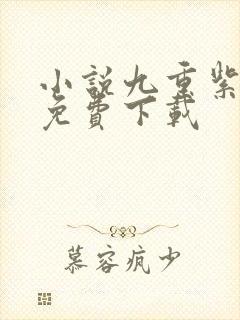 小説九重紫
免費下載
慕容疯少